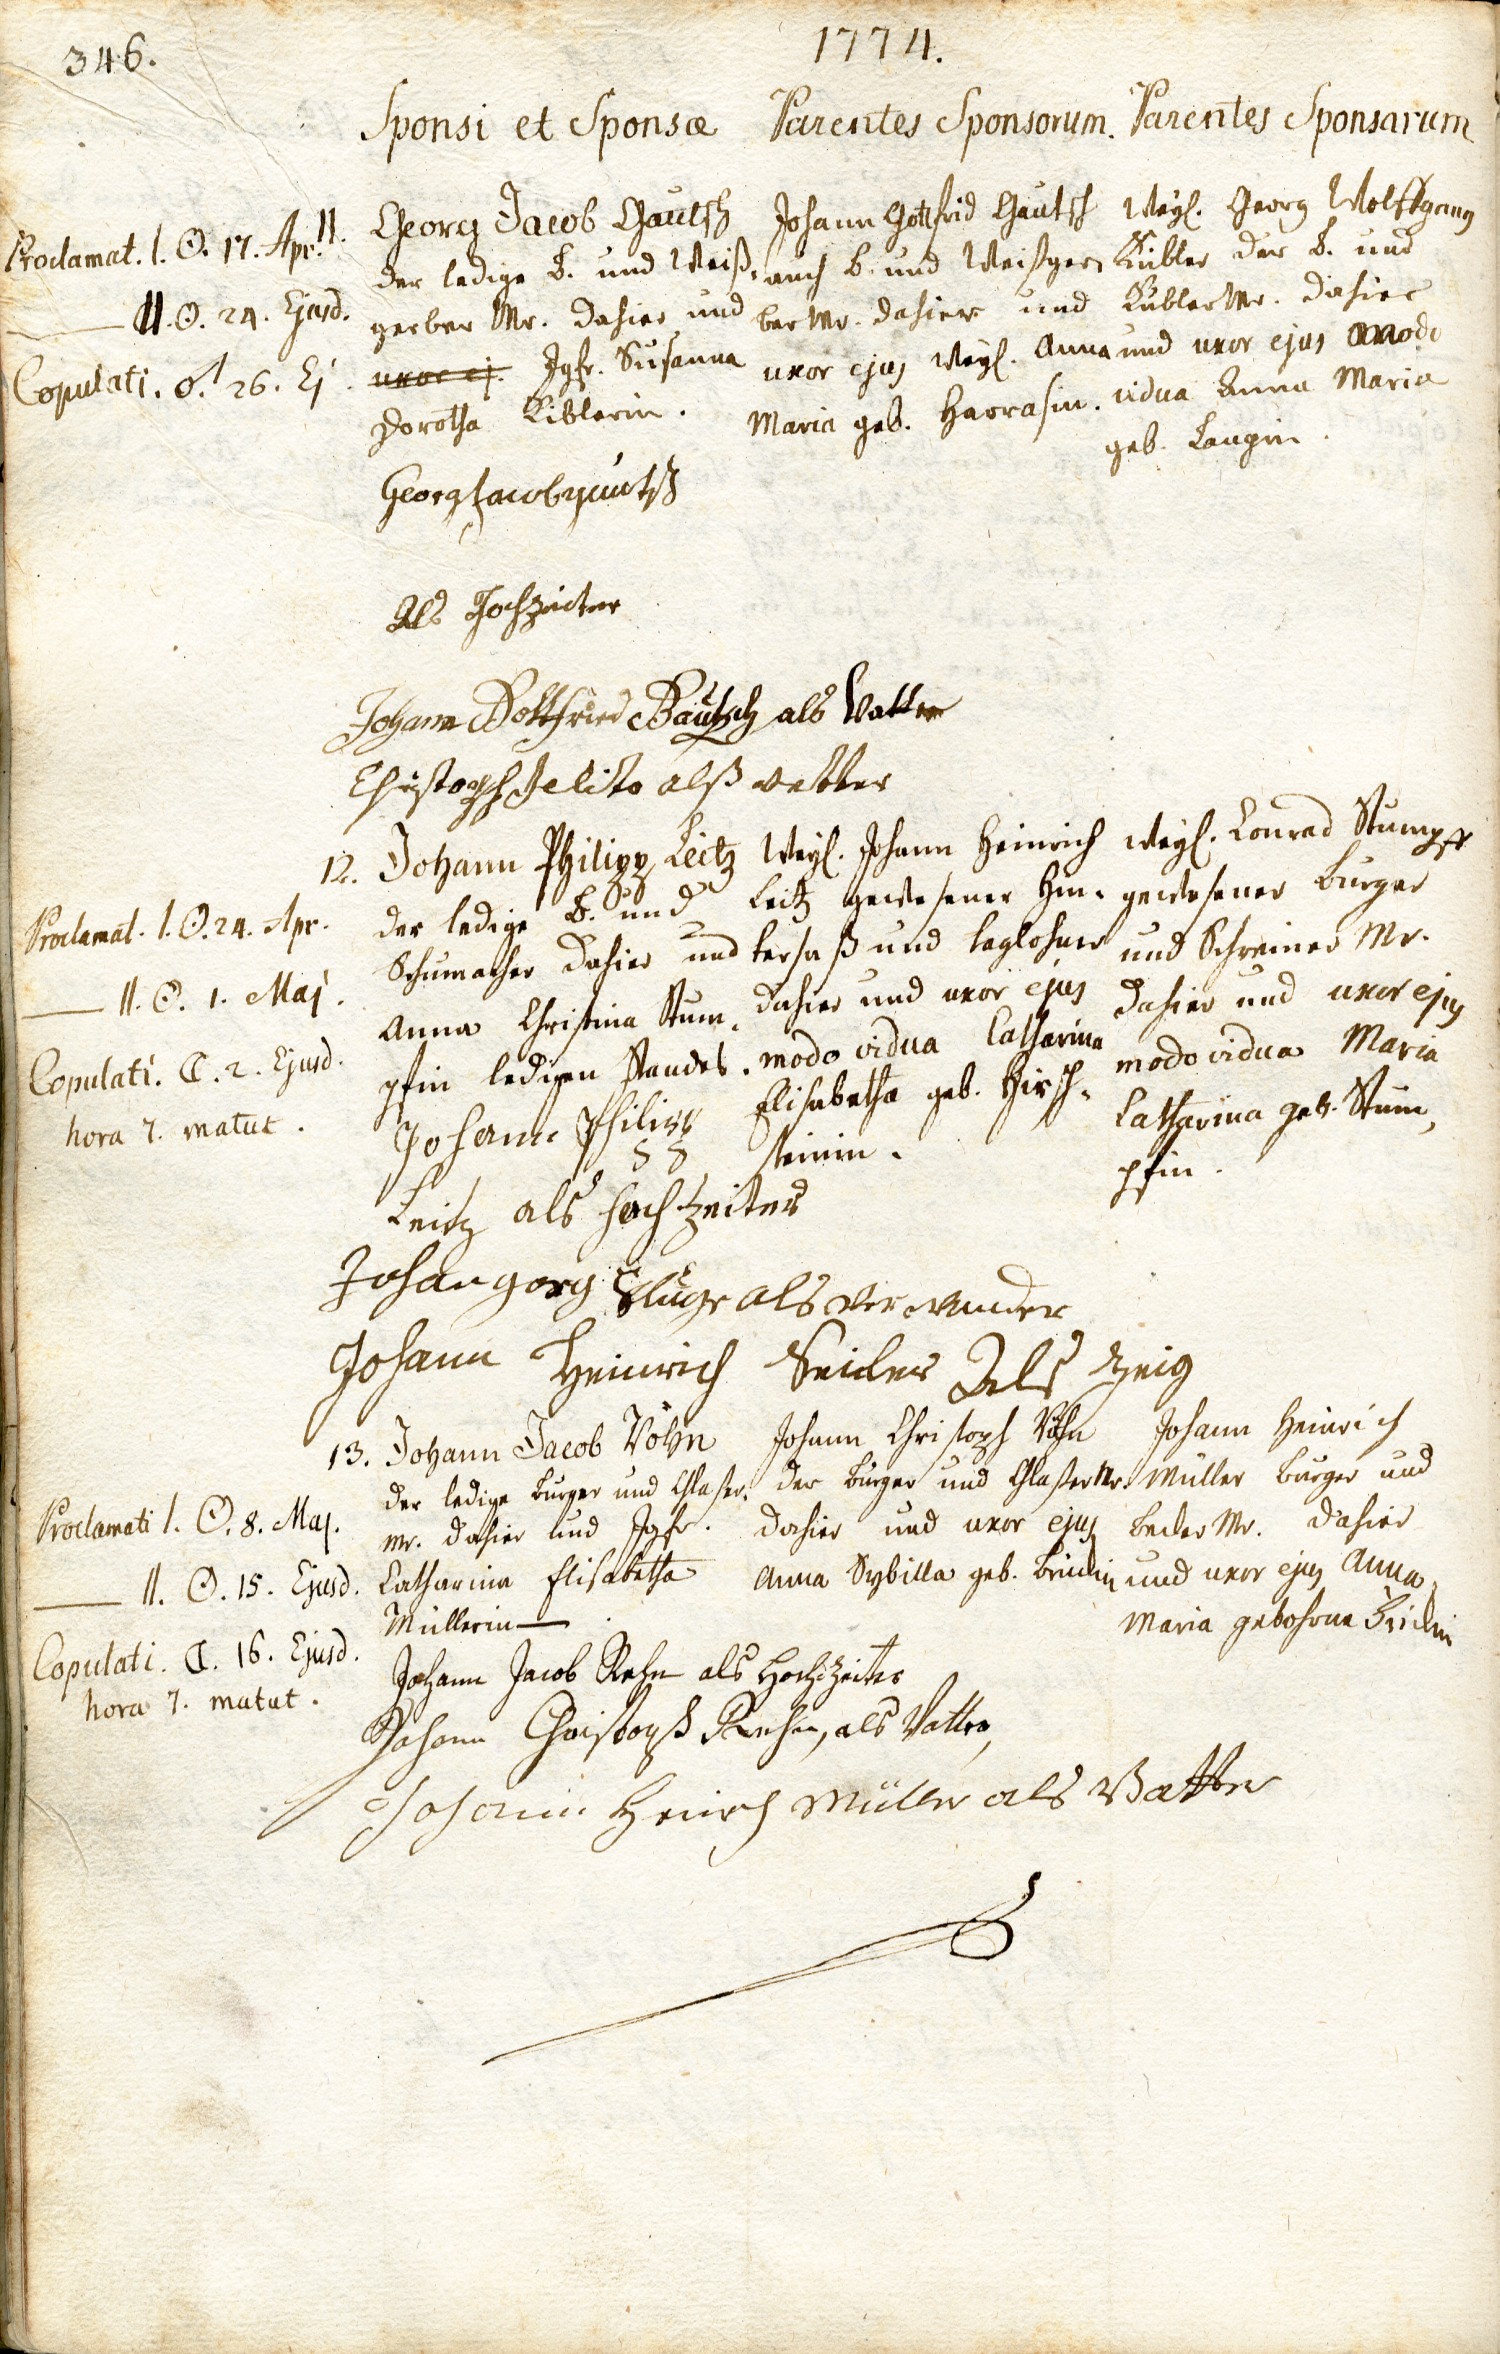 346.
1774.
Sponsi et Sponsæ
Parentes Sponsorum.
Parentes Sponsarum
11.
Proclamat. I. ☉. 17. Apr.
—— II. ☉. 24. Ejusd.
Copulati. ♂ 26. Ej.
Georg Jacob Gautsch
der ledige B. und Weiß-
gerber Mr. dahier und
uxor ej. Jgfr. Susanna
Dorothea Kiblerin.
Johann Gottfrid Gautsch
auch B. und Weißger-
ber Mr. dahier und
uxor ejus weyl. Anna
Maria geb. Harrasin.
Weyl. Georg Wolffgang
Kübler der B. und
Kübler Mr. dahier
und uxor ejus modo
vidua Anna Maria
geb. Langin.
Georg Jacob gautsch
Als Hochzeiter
Johann Gottfried Gautsch als Vatter
Christoph Jelito alß vetter
12.
Proclamat. I. ☉. 24. Apr.
—— II. ☉. 1. Maj.
Copulati. ☾. 2. Ejusd.
hora 7. matut.
Johann Philipp Leitz
der ledige B. und
Schumacher dahier und
Anna Christina Stum-
pfin ledigen Standes.
Weyl. Johann Heinrich
Leitz gewesener Hin-
tersaß und taglohner
dahier und uxor ejus
modo vidua Catharina
Elisabetha geb. Hirsch-
steinin.
Weyl. Conrad Stumpff
gewesener Burger
und Schreiner Mr.
dahier und uxor ejus
modo vidua Maria
Catharina geb. Stum-
pfin.
Johann Philipp
Leitz als hochzeiter
Johan gorg Kluge als ver wander
Johann Heinrich Seider Als Zeig
13.
Proclamati I. ☉. 8. Maj.
—— II. ☉. 15. Ejusd.
Copulati. ☾. 16. Ejusd.
hora 7. matut.
Johann Jacob Röhn
der ledige Burger und Glaser-
Mr. dahier und Jgfr.
Catharina Elisabetha
Müllerin —
Johann Christoph Röhn
der Burger und Glaser Mr.
dahier und uxor ejus
Anna Sybilla geb.
Johann Heinrich
Müller Burger und
Becker Mr. dahier
und uxor ejus Anna
Maria gebohrne
Johann Jacob Rehn als Hochzeiter
Johann Christoph Rehn, als Vatter,
Johann Heinrch Müller als Vatter